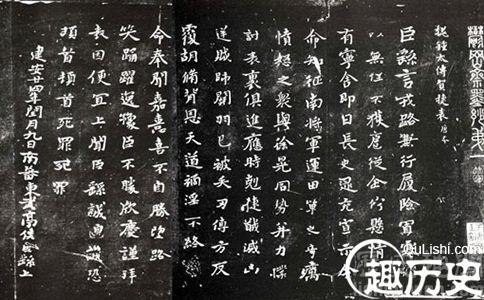 鬱岡齋墨妙第一
魏鍾太傅賀捷表唐本
臣繇言戎路兼行履險冒寒
以無任不獲扈從企佇懸情
有寧舍即日長史逯充宣示令
命知征南將軍運田單之奇厲
憤怒之衆與徐晃同勢并力撲
討表裏俱進應時剋捷馘滅凶
逆賊帥關羽已被矢刃傅方反
覆胡脩背恩天道禍淫不終厥
命奉聞嘉憙喜不自勝望路載
笑踊躍逸豫臣不勝欣慶謹拜
表因便宜上聞臣繇誠皇誠恐
頓首頓首死罪死罪
建安廿四年閏月九日南蕃東武亭侯臣繇上
QuLishi.com
趣历史